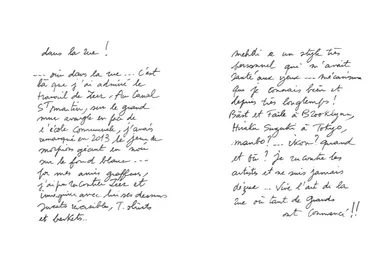 dans la rue !
--- oui dans la rue --- c'est
là que j'ai admiré le
travail de Zeer. Au Canal
St martin, sur le grand
mur aveugle en face de
l'école Communale, j'avais
remarqué en 2013 le jeu de
morpion géant en noir
sur le fond blanc ---
par mes amis graffeurs,
j'ai pu rencontrer Zeer et
imaginer avec lui ses dessins
incroyables, T. shirts
et baskets..
a un style très
personnel qui m'avait
sauté aux yeux --- mécanisme
que je connais bien et
depuis très longtemps !
Bäst et Faile à Brooklyn,
à Tokyo,
...... quand
et où ? Je rencontre les
artistes et ne suis jamais
déçue --- Vive l'art de la
rue où tant de grands
ont commencé !!